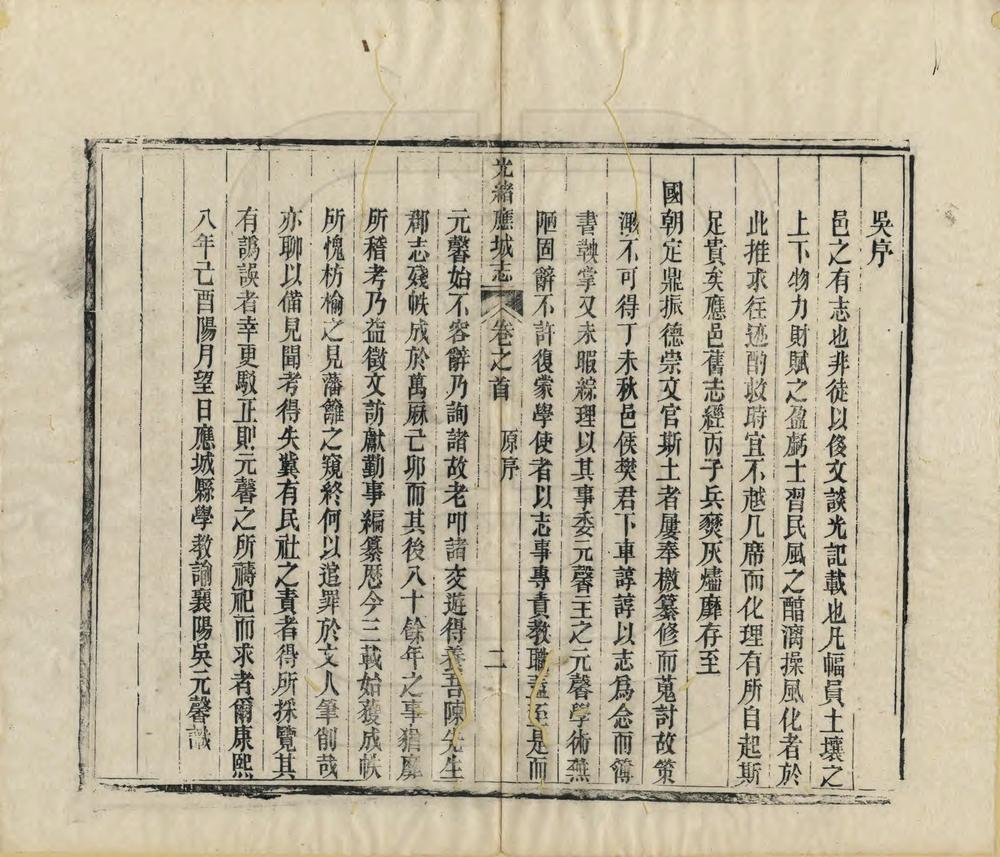 吳序
邑之有志也非徒以侈文談光記載也凡幅員土壤之
上下物力財賦之盈虧士習民風之醕漓操風化者於
此推求往迹酌收時宜不越几席而化理有所自起斯
足貴矣應邑舊志經丙子兵燹灰燼靡存至
國朝定鼎振德崇文官斯土者屢奉檄纂修而蒐討故策
渺不可得丁未秋邑侯樊君下車諄諄以志爲念而簿
書鞅掌又未暇綜理以其事委元馨主之元馨學術蕪
陋固辭不許復蒙學使者以志事專責教職蓋至是而
光緒應城志
卷之首
原序
二
元馨始不容辭乃詢諸故老叩諸交遊得養吾陳先生
郡志殘帙成於萬厤己卯而其後八十餘年之事猶靡
所稽考乃益徵文訪獻勤事編纂厯今三載始獲成帙
所愧枋榆之見藩籬之窺終何以逭罪於文人筆削哉
亦聊以備見聞考得失冀有民社之責者得所採覽其
有譌誤者幸更駁正則元馨之所禱祀而求者爾康熙
八年己酉陽月望日應城縣學教諭襄陽吳元馨識